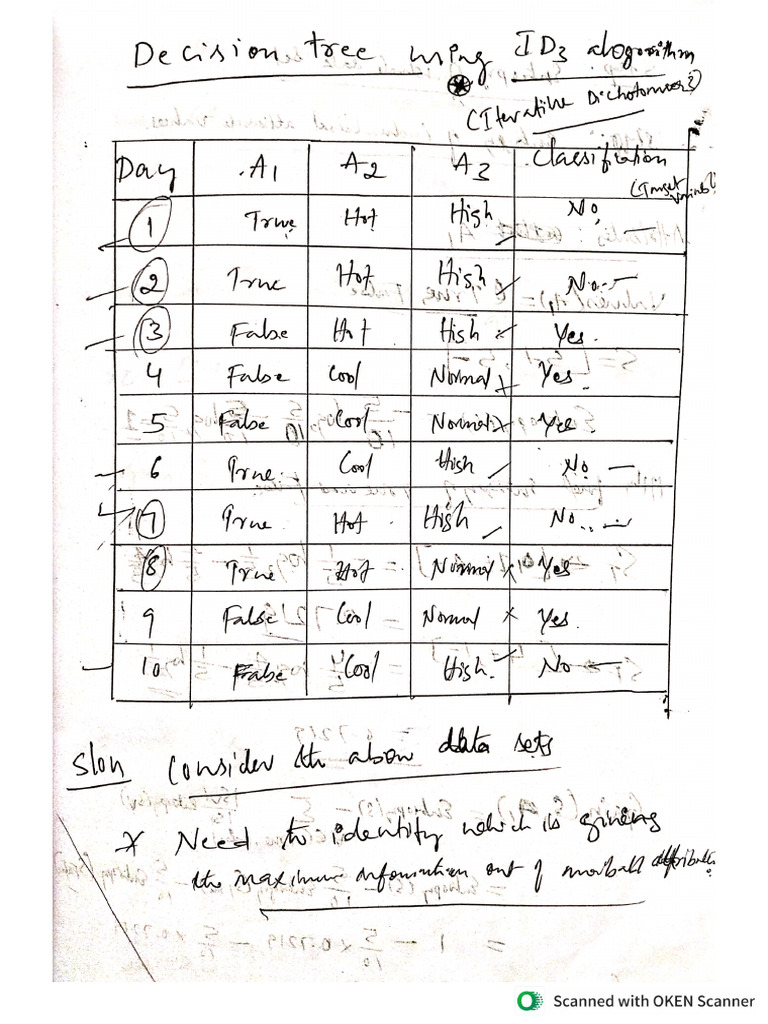 Decision tree using ID3 alogorithm
(Iterative Dichotomiser3)
Day A1 A2 A3 Classification
(Target variable)
1 True Hot High No
2 True Hot High No
3 False Hot High Yes.
4 False Cool Normal Yes.
5 False Cool Normal Yes.
6 True Cool High No
7 True Hot High No
8 True Hot Normal Yes
9 False Cool Normal Yes.
10 False Cool High No
Slon Consider th above data sets
* Need to identity which is giving
the maximum information out of
OKEN Scanner
Scanned with OKEN Scanner